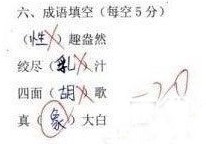 六、成语填空（每空5分）
（性）趣盎然
绞尽（乳）汁
四面（胡）歌
真（象）大白
-20